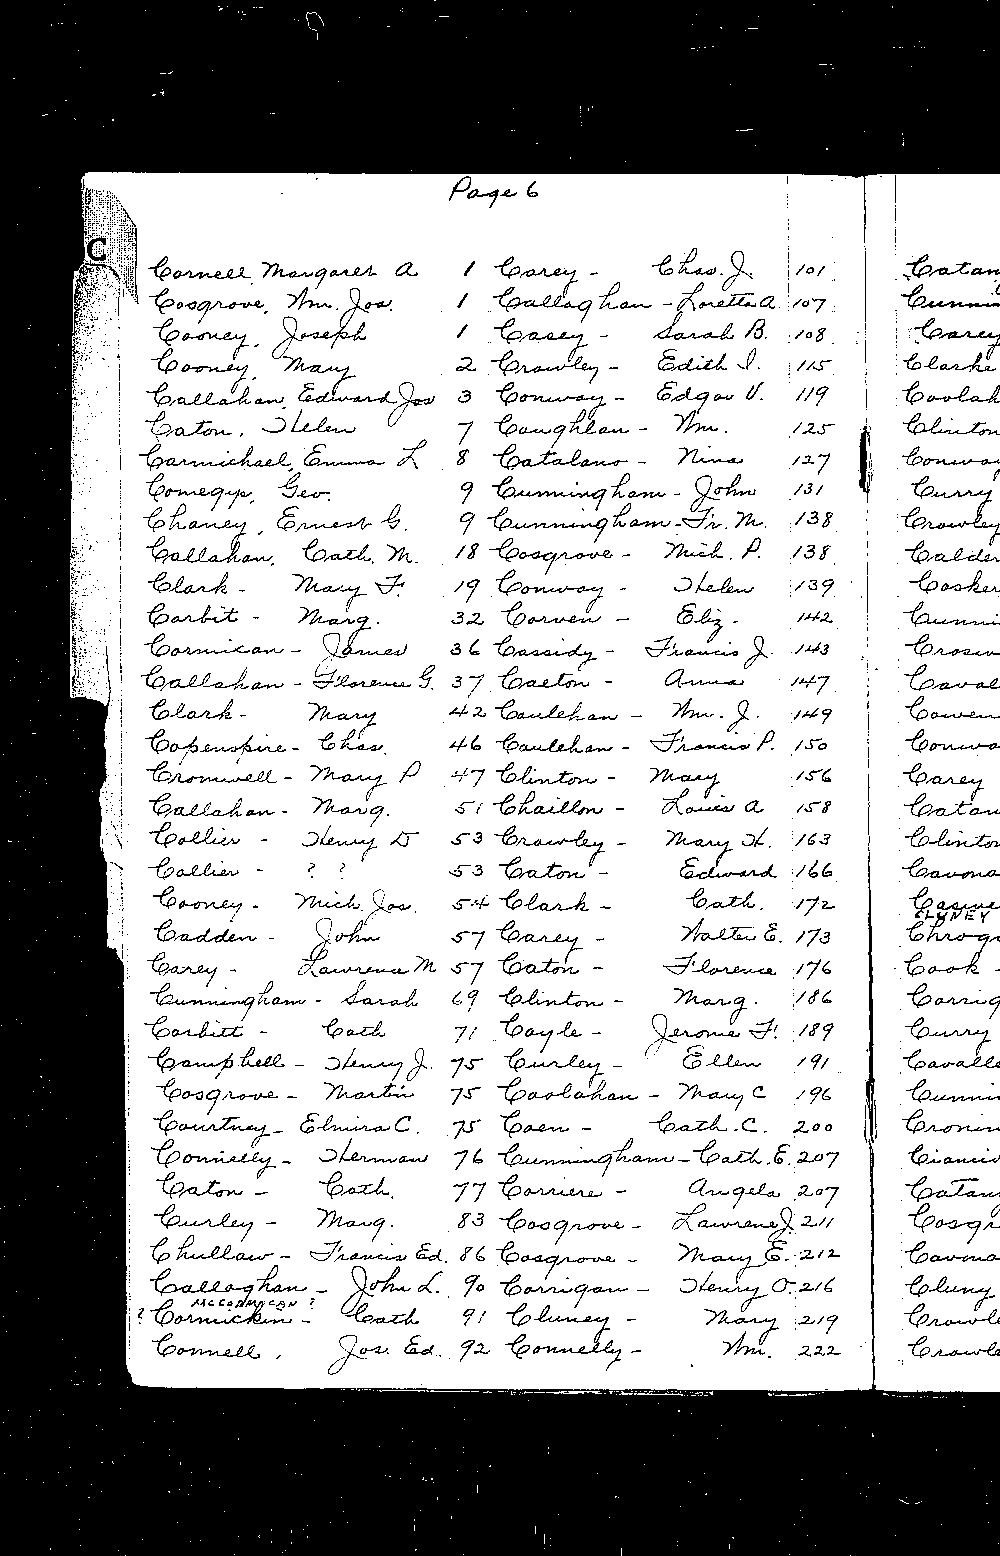 Page 6
C
Cornell, Margaret A 1 Carey - Chas. J. 101
Cosgrove, Wm. Jos. 1 Callaghan - Loretta A 107
Cooney, Joseph 1 Casey - Sarah B. 108
Cooney, Mary 2 Crowley - Edith I. 115
Callahan, Edward Jos 3 Conway - Edgar V. 119
Caton, Helen 7 Coughlan - Wm. 125
Carmichael, Emma L 8 Catalano - Nina 127
Comegys, Geo. 9 Cunningham - John 131
Chaney, Ernest G. 9 Cunningham - Fr. M. 138
Callahan, Cath. M. 18 Cosgrove - Mich. P. 138
Clark - Mary F. 19 Conway - Helen 139
Corbit - Marg. 32 Corven - Eliz. 142
Cormican - James 36 Cassidy - Francis J. 143
Callahan - Florence G. 37 Caeton - Anna 147
Clark - Mary 42 Caulehan - Wm. J. 149
Copenspire - Chas. 46 Caulehan - Francis P. 150
Cromwell - Mary P 47 Clinton - Mary 156
Callahan - Marg. 51 Chaillon - Louis A 158
Collier - Henry D 53 Crowley - Mary H. 163
Collier - ? ? 53 Caton - Edward 166
Cooney - Mich. Jos. 54 Clark - Cath. 172
Cadden - John 57 Carey - Walter E. 173
Carey - Lawrence M 57 Caton - Florence 176
Cunningham - Sarah 69 Clinton - Marg. 186
Corbitt - Cath 71 Coyle - Jerome F. 189
Campbell - Henry J. 75 Curley - Ellen 191
Cosgrove - Martin 75 Coolahan - Mary C 196
Courtney - Elmira C. 75 Coen - Cath. C. 200
Connelly - Herman 76 Cunningham - Cath. E. 207
Caton - Cath. 77 Corriere - Angela 207
Curley - Marg. 83 Cosgrove - Lawrence J. 211
Chullaw - Francis Ed. 86 Cosgrove - Mary E. 212
Callaghan - John L. 90 Corrigan - Henry O. 216
McCORMACAN ?
? Cormickin - Cath 91 Cluney - Mary 219
Connell, Jos. Ed. 92 Connelly - Wm. 222
Catan
Cunnin
Carey
Clarke
Coolah
Clinton
Conway
Curry
Crowley
Calder
Cosker
Cunni
Croswe
Caval
Cowen
Conwa
Carey
Catan
Clinton
Cavona
CLUNEY
Cook -
Corrig
Curry
Cavalle
Cunnin
Cronin
Ciancio
Catan
Cosgr
Cavona
Cluny
Crowle
Crowle